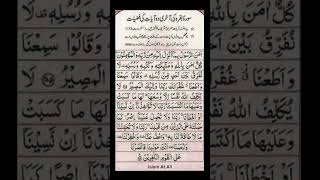 سورۃ البقرہ کی آخری دو آیات کی فضیلت
اٰمَنَ الرَّسُوْلُ بِمَاۤ اُنْزِلَ اِلَیْهِ مِنْ رَّبِّهٖ وَالْمُؤْمِنُوْنَ
كُلٌّ اٰمَنَ بِاللّٰهِ وَمَلٰٓىِٕكَتِهٖ وَكُتُبِهٖ وَرُسُلِهٖ لَا
نُفَرِّقُ بَیْنَ اَحَدٍ مِّنْ رُّسُلِهٖ وَقَالُوْا سَمِعْنَا
وَاَطَعْنَا غُفْرَانَكَ رَبَّنَا وَاِلَیْكَ الْمَصِیْرُ لَا
یُكَلِّفُ اللّٰهُ نَفْسًا اِلَّا وُسْعَهَا لَهَا مَا كَسَبَتْ
وَعَلَیْهَا مَا اكْتَسَبَتْ رَبَّنَا لَا تُؤَاخِذْنَاۤ اِنْ نَّسِیْنَاۤ
اَوْ اَخْطَاْنَا رَبَّنَا وَلَا تَحْمِلْ عَلَیْنَاۤ اِصْرًا كَمَا
حَمَلْتَهٗ عَلَى الَّذِیْنَ مِنْ قَبْلِنَا رَبَّنَا وَلَا تُحَمِّلْنَا
مَا لَا طَاقَةَ لَنَا بِهٖ وَاعْفُ عَنَّا وَاغْفِرْ لَنَا
وَارْحَمْنَا اَنْتَ مَوْلٰىنَا فَانْصُرْنَا
عَلَى الْقَوْمِ الْكٰفِرِیْنَ
Islam At All